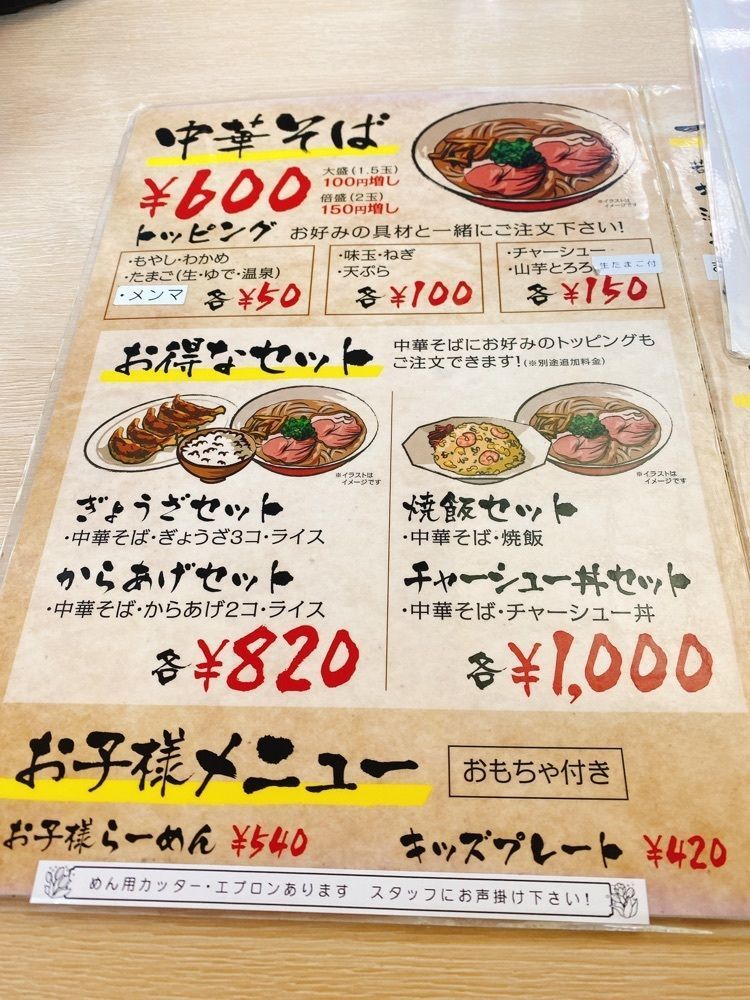 中華そば
¥600
大盛(1.5玉)
100円増し
倍盛(2玉)
150円増し
※イラストは
イメージです
トッピング お好みの具材と一緒にご注文下さい!
・もやし・わかめ
・たまご(生・ゆで・温泉)
・メンマ
各¥50
・味玉・ねぎ
・天ぷら
各¥100
・チャーシュー
・山芋とろろ 生たまご付
各¥150
お得なセット
中華そばにお好みのトッピングも
ご注文できます!(※別途追加料金)
※イラストは
イメージです
※イラストは
イメージです
ぎょうざセット
・中華そば・ぎょうざ3コ・ライス
からあげセット
・中華そば・からあげ2コ・ライス
各¥820
焼飯セット
・中華そば・焼飯
チャーシュー丼セット
・中華そば・チャーシュー丼
各¥1,000
お子様メニュー
おもちゃ付き
お子様らーめん ¥540
キッズプレート ¥420
めん用カッター・エプロンあります スタッフにお声掛け下さい!